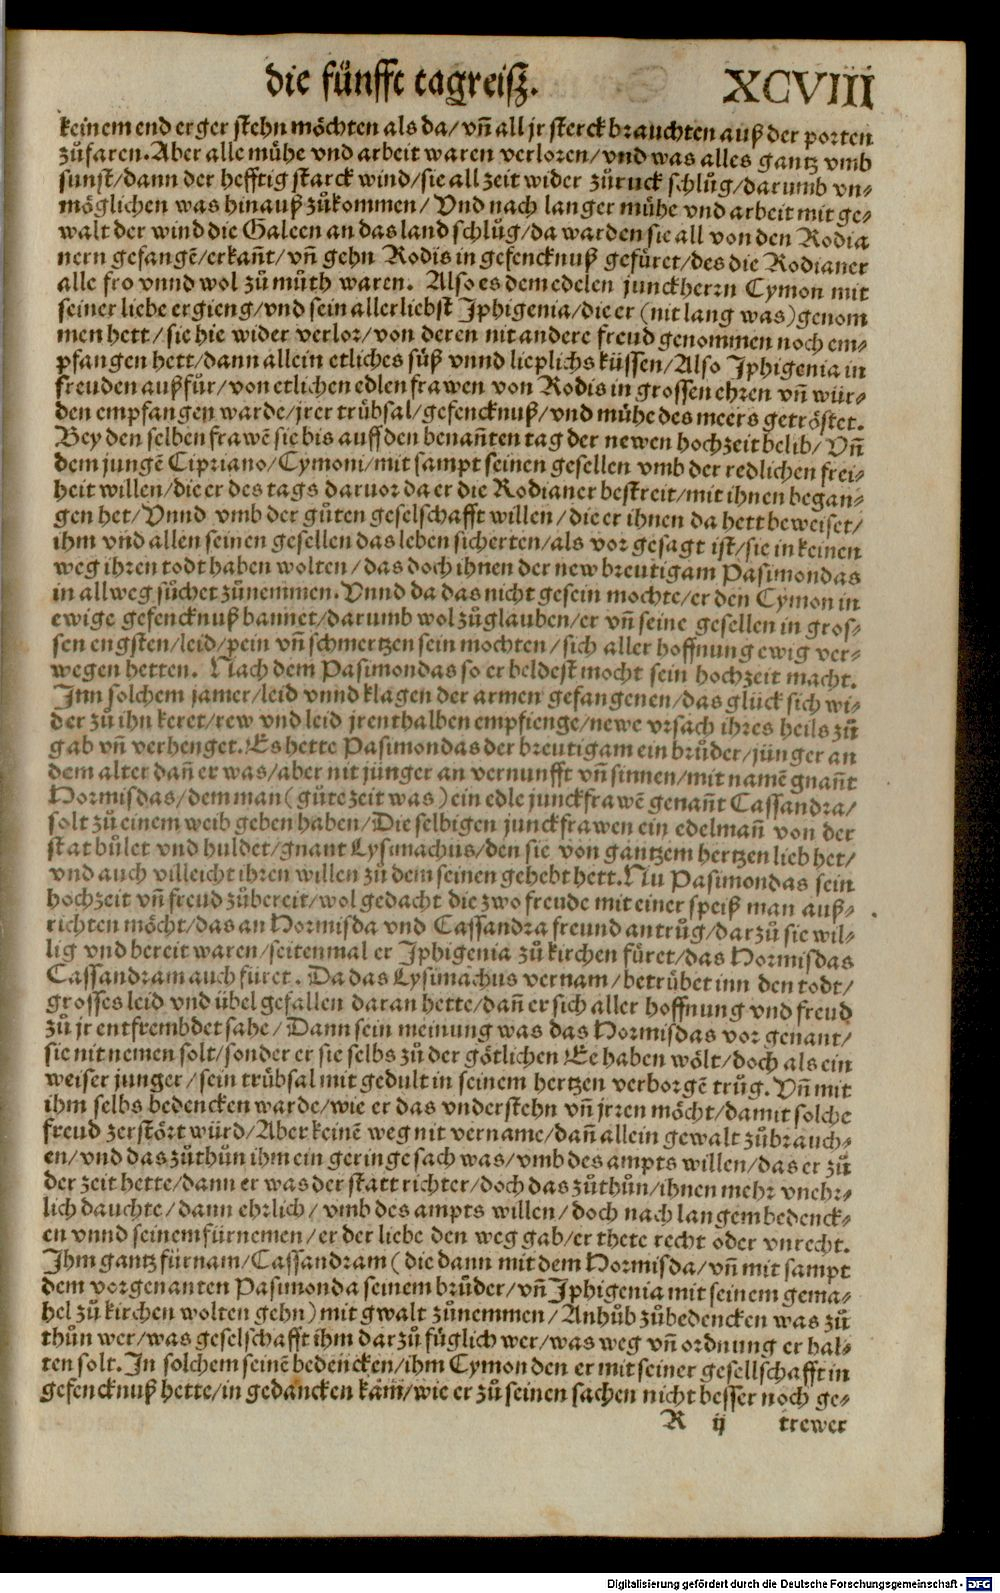 die fünfft tagreisz. XCVIII
keinem end erger stehn möchten als da/ vñ all jr sterck brauchten auß der porten
zůfaren. Aber alle mühe vnd arbeit waren verloren/ vnd was alles gantz vmb
sunst/ dann der hefftig starck wind/ sie all zeit wider zůruck schlůg/ darumb vn⸗
möglichen was hinauß zůkommen/ Vnd nach langer mühe vnd arbeit mit ge⸗
walt der wind die Galeen an das land schlůg/ da warden sie all von den Rodia
nern gefangẽ/ erkañt/ vñ gehn Rodis in gefencknuß gefüret/ des die Rodianer
alle fro vnnd wol zů můth waren. Also es dem edelen junckherrn Cymon mit
seiner liebe ergieng/ vnd sein allerliebst Jphigenia/ die er (nit lang was) genom
men hett/ sie hie wider verlor/ von deren nit andere freud genommen noch em⸗
pfangen hett/ dann allein etliches süß vnnd lieplichs küssen/ Also Jphigenia in
freuden außfür/ von etlichen edlen frawen von Rodis in grossen ehren vñ wür⸗
den empfangen warde/ jrer trübsal/ gefencknuß/ vnd mühe des meers getröstet.
Bey den selben frawẽ sie bis auff den benañten tag der newen hochzeit belib/ Vñ
dem jungẽ Cipriano/ Cymoni/ mit sampt seinen gesellen vmb der redlichen frei⸗
heit willen/ die er des tags daruor da er die Rodianer bestreit/ mit ihnen began⸗
gen het/ Vnnd vmb der gůten geselschafft willen/ die er ihnen da hett beweiset/
ihm vnd allen seinen gesellen das leben sicherten/ als vor gesagt ist/ sie in keinen
weg ihren todt haben wolten/ das doch ihnen der new breutigam Pasimondas
in allweg sůchet zůnemmen. Vnnd da das nicht gesein mochte/ er den Cymon in
ewige gefencknuß bannet/ darumb wol zůglauben/ er vñ seine gesellen in gros⸗
sen engsten/ leid/ pein vñ schmertzen sein mochten/ sich aller hoffnung ewig ver⸗
wegen hetten. Nach dem Pasimondas so er beldest mocht sein hochzeit macht.
Jnn solchem jamer/ leid vnnd klagen der armen gefangenen/ das glück sich wi⸗
der zů ihn keret/ rew vnd leid jrenthalben empfienge/ newe vrsach ihres heils zů
gab vñ verhenget. Es hette Pasimondas der breutigam ein brůder/ jünger an
dem alter dañ er was/ aber nit jünger an vernunfft vñ sinnen/ mit namẽ gnañt
Hormisdas/ dem man (gůte zeit was) ein edle junckfrawẽ genañt Cassandra/
solt zů einem weib geben haben/ Die selbigen junckfrawen ein edelmañ von der
stat bůlet vnd huldet/ gnant Lysimachus/ den sie von gantzem hertzen lieb het/
vnd auch villeicht ihren willen zů dem seinen gehebt hett. Nu Pasimondas sein
hochzeit vñ freud zůbereit/ wol gedacht die zwo freude mit einer speiß man auß⸗
richten möcht/ das an Hormisda vnd Cassandra freund antrůg/ darzů sie wil⸗
lig vnd bereit waren/ seitenmal er Jphigenia zů kirchen füret/ das Hormisdas
Cassandram auch füret. Da das Lysimachus vernam/ betrübet inn den todt/
grosses leid vnd übel gefallen daran hette/ dañ er sich aller hoffnung vnd freud
zů jr entfrembdet sahe/ Dann sein meinung was das Hormisdas vor genant/
sie nit nemen solt/ sonder er sie selbs zů der götlichen Ee haben wölt/ doch als ein
weiser junger/ sein trübsal mit gedult in seinem hertzen verborgẽ trůg. Vñ mit
ihm selbs bedencken warde/ wie er das vnderstehn vñ jrren möcht/ damit solche
freud zerstört würd/ Aber keinẽ weg nit vername/ dañ allein gewalt zůbrauch⸗
en/ vnd das zůthůn ihm ein geringe sach was/ vmb des ampts willen/ das er zů
der zeit hette/ dann er was der statt richter/ doch das zůthůn/ ihnen mehr vnehr⸗
lich dauchte/ dann ehrlich/ vmb des ampts willen/ doch nach langem bedenck⸗
en vnnd seinem fürnemen/ er der liebe den weg gab/ er thete recht oder vnrecht.
Jhm gantz fürnam/ Cassandram (die dann mit dem Hormisda/ vñ mit sampt
dem vorgenanten Pasimonda seinem brůder/ vñ Jphigenia mit seinem gema⸗
hel zů kirchen wolten gehn) mit gwalt zůnemmen/ Anhůb zůbedencken was zů
thůn wer/ was geselschafft ihm darzů füglich wer/ was weg vñ ordnung er hal⸗
ten solt. Jn solchem seinẽ bedencken/ ihm Cymon den er mit seiner gesellschafft in
gefencknuß hette/ in gedancken kam/ wie er zů seinen sachen nicht besser noch ge⸗
R ij trewer
Digitalisierung gefördert durch die Deutsche Forschungsgemeinschaft - DFG